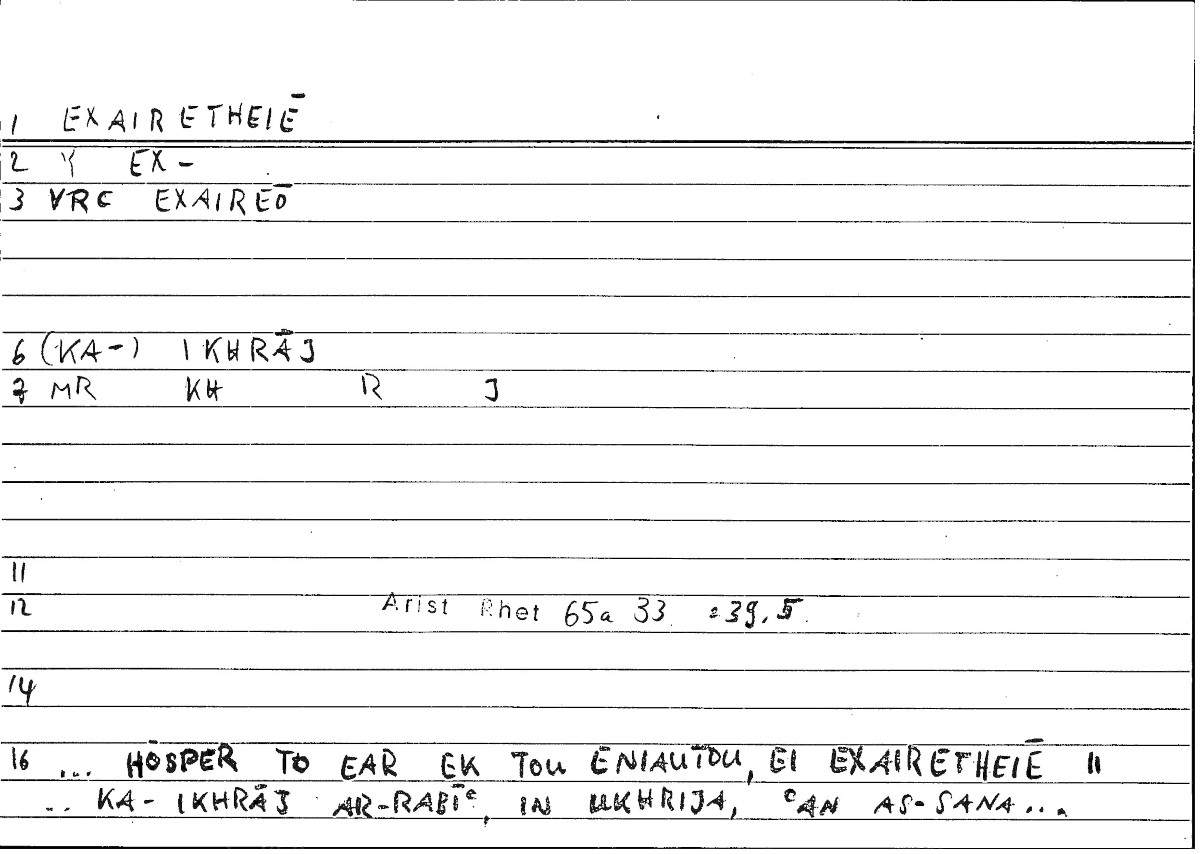 1 EXAIRETHEIĒ
2 Y EX-
3 VRC EXAIREŌ
6 (KA-) IKHRĀJ
7 MR KH R J
11
12 Arist Rhet 65a 33 = 39,5
14
16 ... HŌSPER TO EAR EK TOU ENIAUTOU, EI EXAIRETHEIĒ ||
.. KA- IKHRĀJ AR-RABĪᶜ, IN UKHRIJA, ᶜAN AS-SANA...